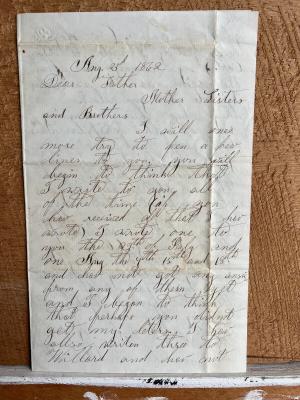 Aug 25th 1862
Dear Father
Mother Sisters
and Brothers
I will once
more try to pen a few
lines to you you will
begin to think that
I write to you all
of the time (if you
hav received all that I hav
wrote) I wrote one to
you the 27th of July and
one Aug the 9th 15th and 18th
and hav not got any answ
from any of them yet
and I began to think
that perhaps you didnt
get my leters I hav
also writen three to
Willard and hav not